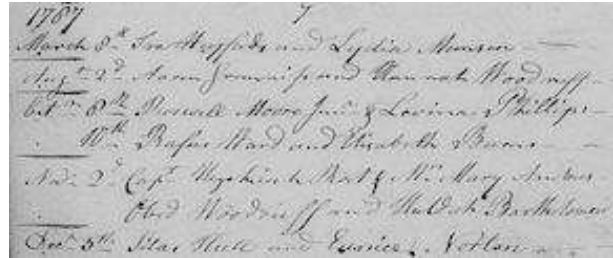 1787 7
March 8th Ira and Lydia Munson
Augt 2d Aaron and Hannah Woodruff
Oct 8th Roswell Moore Junr & Lovina Phillips
10th Rufus Ward and Elizabeth
Nov 2d Capt Hezekiah & Mrs Mary Andrus
Obed Woodruff and Huldah Bartholomew
Decr 5th Silas and Eunice Norton